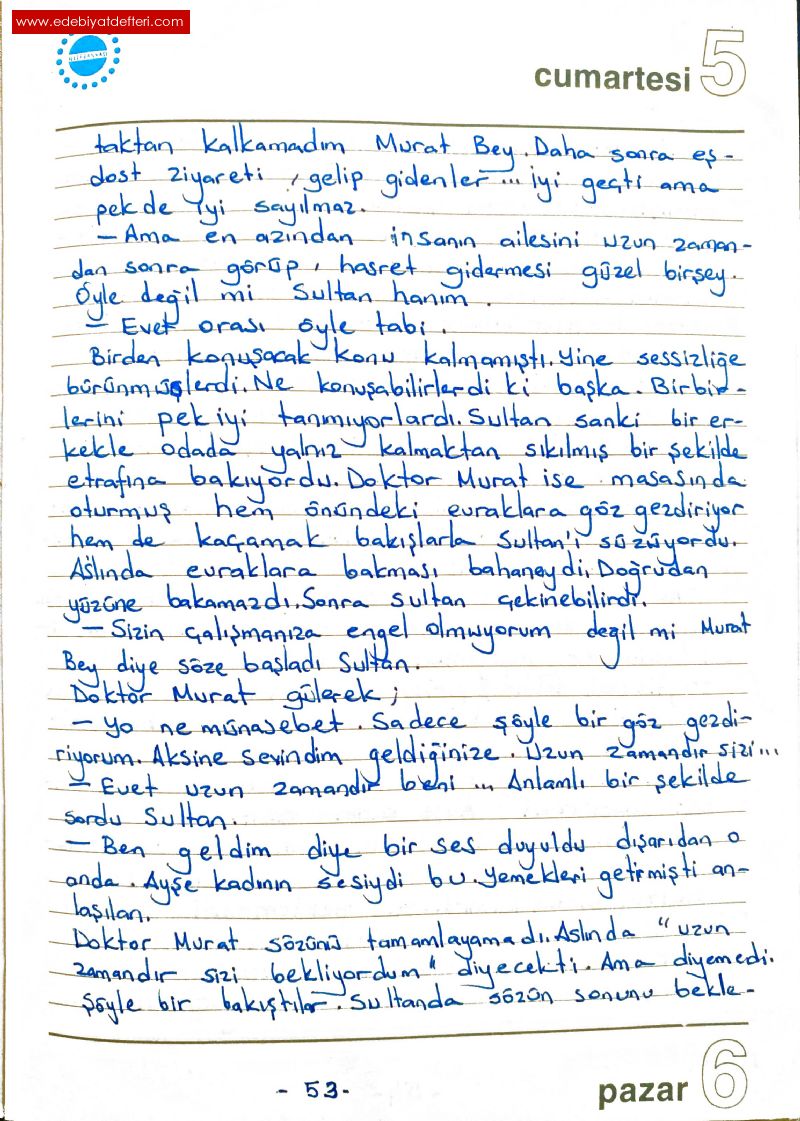 www.edebiyatdefteri.com
cumartesi 5
taktan kalkamadım Murat Bey. Daha sonra eş-
dost ziyareti, gelip gidenler... iyi geçti ama
pek de iyi sayılmaz.
- Ama en azından insanın ailesini uzun zaman-
dan sonra görüp, hasret gidermesi güzel birşey.
Öyle değil mi Sultan hanım.
- Evet orası öyle tabi.
Birden konuşacak konu kalmamıştı. Yine sessizliğe
bürünmüşlerdi. Ne konuşabilirlerdi ki başka. Birbir-
lerini pek iyi tanımıyorlardı. Sultan sanki bir er-
kekle odada yalnız kalmaktan sıkılmış bir şekilde
etrafına bakıyordu. Doktor Murat ise masasında
oturmuş hem önündeki evraklara göz gezdiriyor
hem de kaçamak bakışlarla Sultan'ı süzüyordu.
Aslında evraklara bakması bahaneydi. Doğrudan
yüzüne bakamazdı. Sonra Sultan çekinebilirdi.
- Sizin çalışmanıza engel olmuyorum değil mi Murat
Bey diye söze başladı Sultan.
Doktor Murat gülerek;
- Yo ne münasebet. Sadece şöyle bir göz gezdi-
riyorum. Aksine sevindim geldiğinize. Uzun zamandır sizi...
- Evet uzun zamandır beni... Anlamlı bir şekilde
sordu Sultan.
- Ben geldim diye bir ses duyuldu dışarıdan o
anda. Ayşe kadının sesiydi bu. Yemekleri getirmişti an-
laşılan.
Doktor Murat sözünü tamamlayamadı. Aslında "uzun
zamandır sizi bekliyordum" diyecekti. Ama diyemedi.
Şöyle bir bakıştılar. Sultanda sözün sonunu bekle-
- 53 -
pazar 6